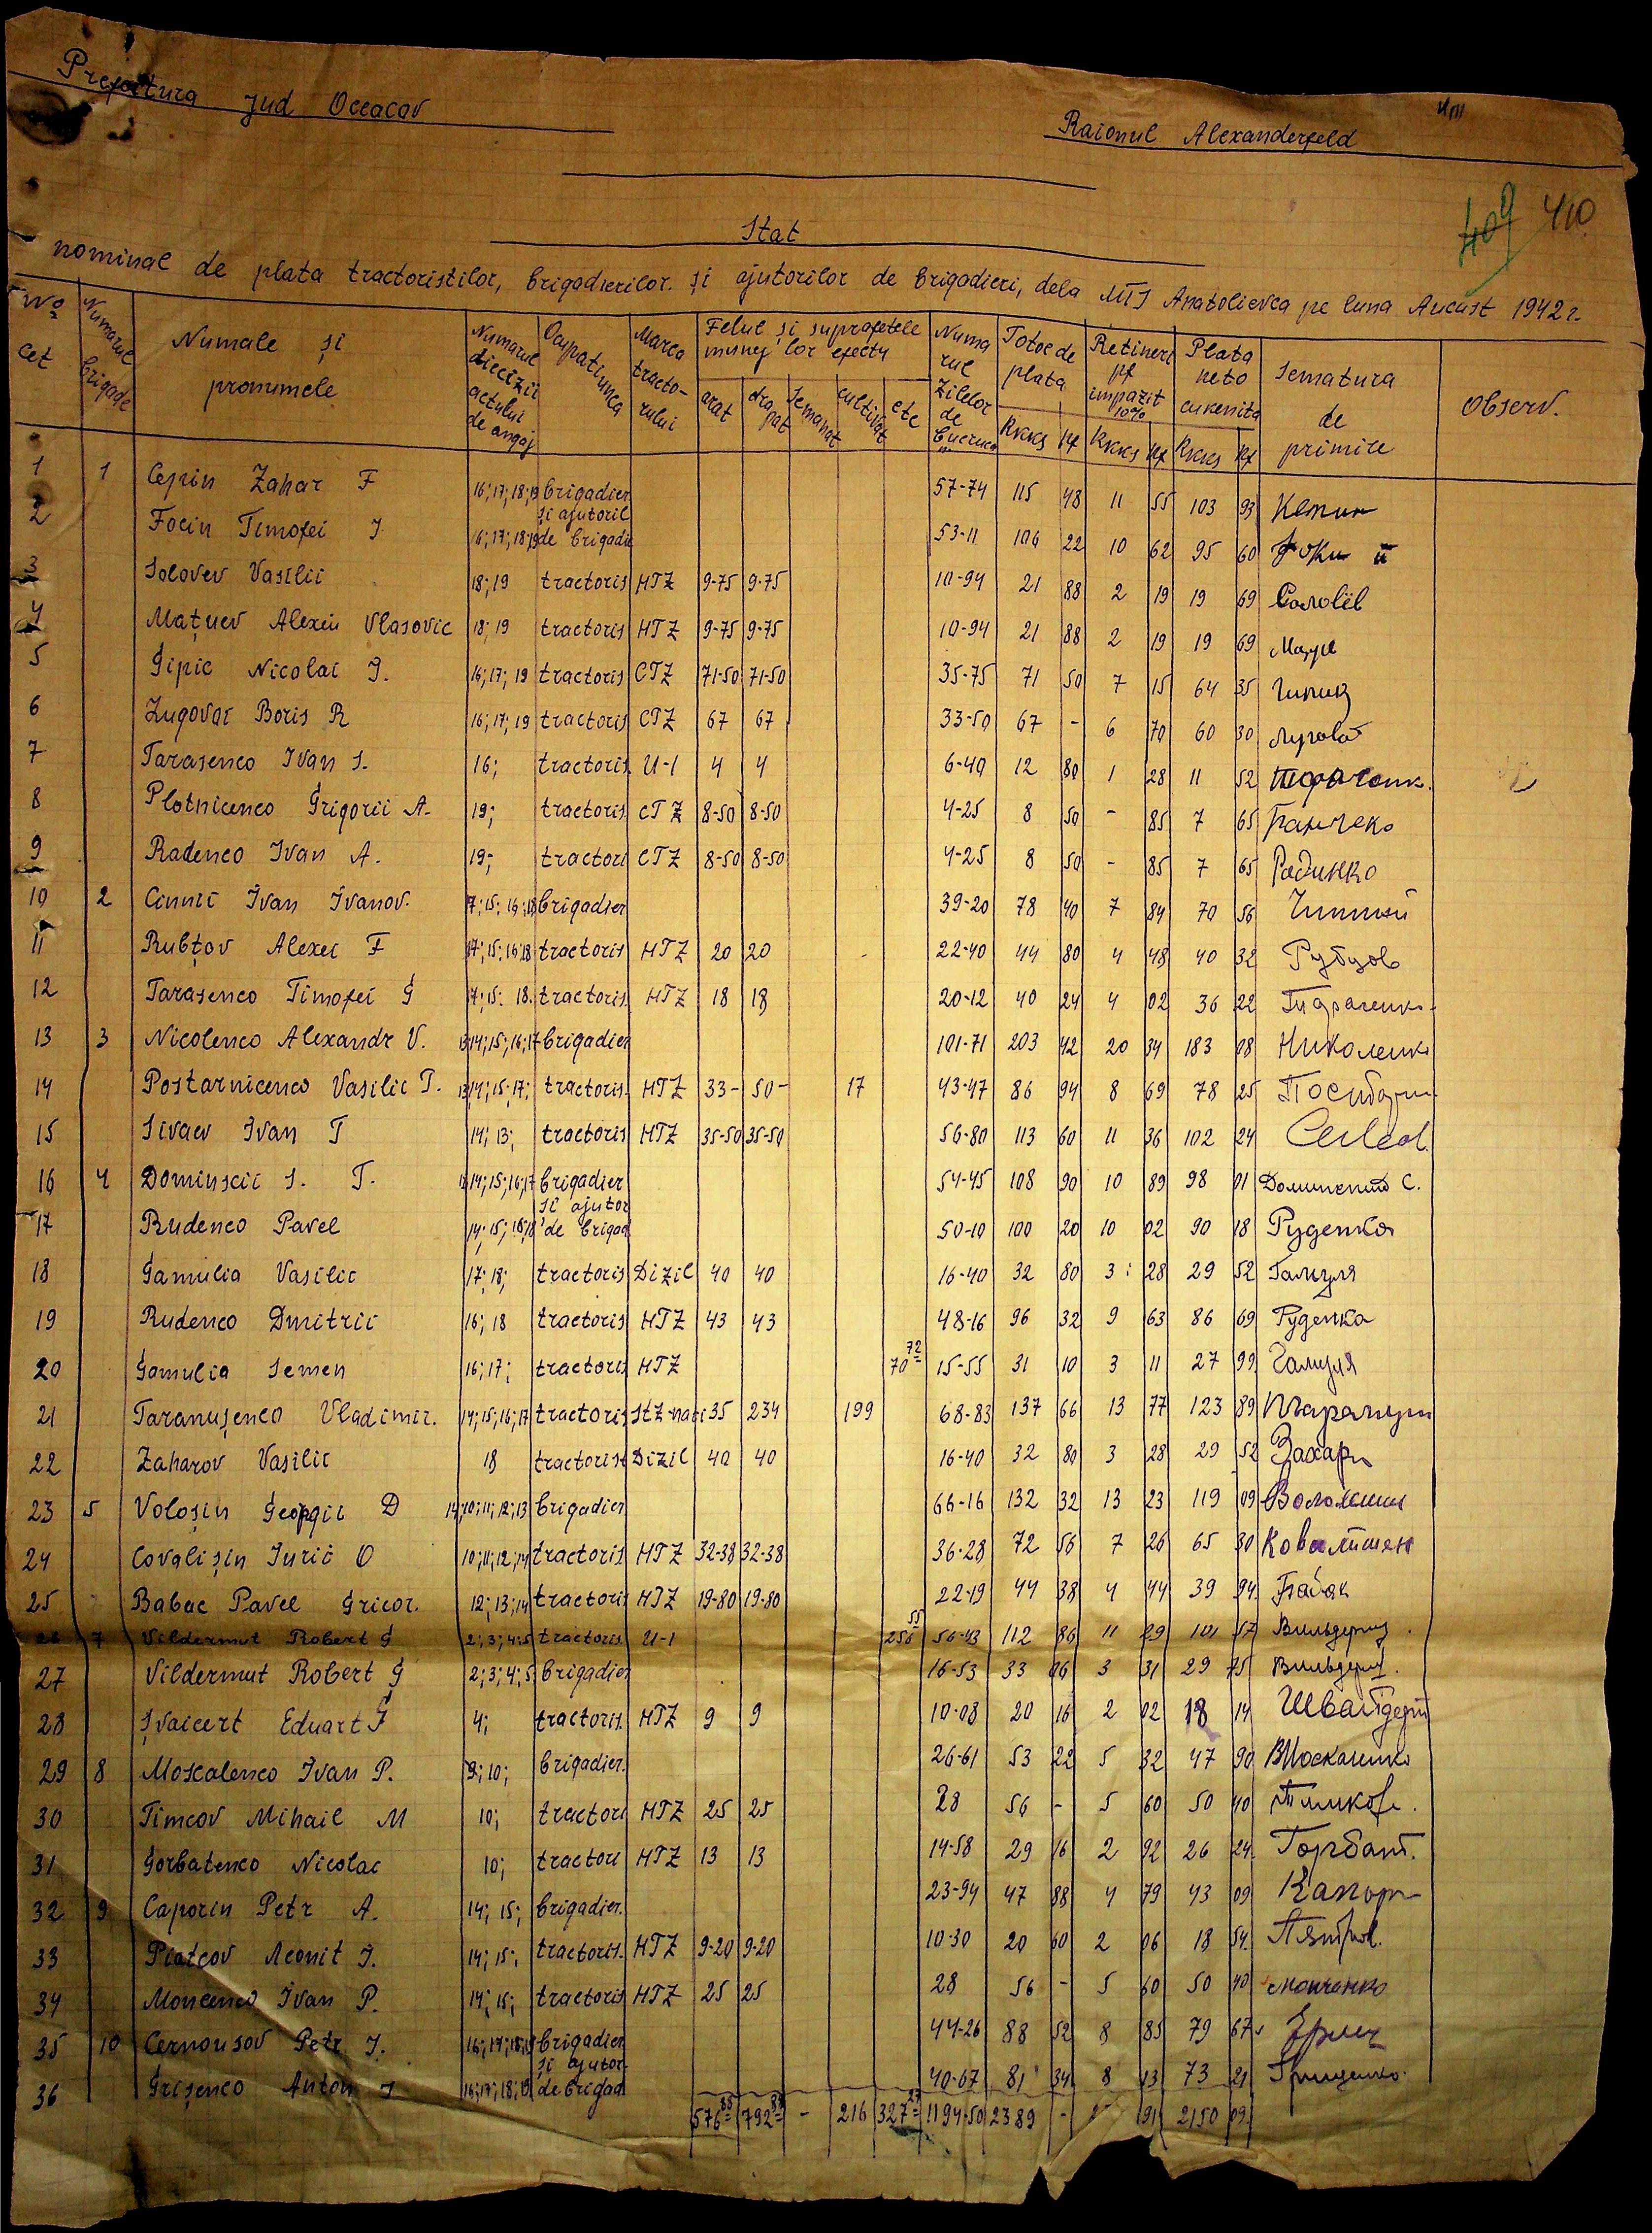 Prefectura jud Oceacov
Raionul Alexanderfeld
409 410
Stat
nominal de plata tractoristilor, brigadierilor. și ajutorilor de brigadieri, dela MTS Anatolievca pe luna August 1942 г.
No cet | Numarul brigade | Numale și pronumele | Numarul diecizii actului de angaj | Ocupatiunea | Marca tractorului | Felul și suprafetele muncilor efectu | Numarul zilelor de lucruca | Totoe de plata | Retineri pf impazit 10% | Plata neto cuvenita | Sematura de primire | Observ.
arat | drapat | semanat | cultivat | etc | RKKS | Pf | RKKS | Pf | RKKS | Pf
1 1 Cepin Zahar F 16; 17; 18; 19 brigadier 57-74 115 48 11 55 103 93 Кепин
2 Focin Timofei J 16; 17; 18; 19 și ajutoril de brigadi 53-11 106 22 10 62 95 60
3 Solovev Vasilii 18; 19 tractoris HTZ 9-75 9-75 10-94 21 88 2 19 19 69 Соловіёв
4 Mațuev Alexeii Vlasovic 18; 19 tractoris HTZ 9-75 9-75 10-94 21 88 2 19 19 69 Мацуе
5 Gipic Nicolai J. 16; 17; 19 tractoris CTZ 71-50 71-50 35-75 71 50 7 15 64 35 Гипиц
6 Lugovai Boris R 16; 17; 19 tractoris CTZ 67 67 33-50 67 - 6 70 60 30 Луговай
7 Tarasenco Ivan S. 16; tractoris U-1 4 4 6-40 12 80 1 28 11 52
8 Plotnicenco Grigorii A. 19; tractoris CTZ 8-50 8-50 4-25 8 50 - 85 7 65
9 Radenco Ivan A. 19; tractori CTZ 8-50 8-50 4-25 8 50 - 85 7 65 Радинко
10 2 Cinnii Ivan Ivanov. 7; 15; 16; 18 brigadier 39-20 78 40 7 84 70 56
11 Rubțov Alexei F 17; 15; 16; 18 tractoris HTZ 20 20 22-40 44 80 4 48 40 32 Рубцов
12 Tarasenco Timofei G 7; 15; 18. tractoris HTZ 18 18 20-12 40 24 4 02 36 22
13 3 Nicolenco Alexandr V. 13; 14; 15; 16; 17 brigadier 101-71 203 42 20 34 183 08 Николенко
14 Postarnicenco Vasilie T. 13; 14; 15; 17; tractoris HTZ 33- 50- 17 43-47 86 94 8 69 78 25
15 Sivaev Ivan T 14; 13; tractoris HTZ 35-50 35-50 56-80 113 60 11 36 102 24
16 4 Dominscii S. T. 13; 14; 15; 16; 17 brigadier 54-45 108 90 10 89 98 01
17 Rudenco Pavel 14; 15; 16; 18 și ajutor de brigad 50-10 100 20 10 02 90 18 Руденка
18 Gamulia Vasilie 17; 18; tractoris Dizil 40 40 16-40 32 80 3 28 29 52 Гамуля
19 Rudenco Dmitrii 16; 18 tractoris HTZ 43 43 48-16 96 32 9 63 86 69 Руденка
20 Gamulia Semen 16; 17; tractoris HTZ 70 72 15-55 31 10 3 11 27 99 Гамуля
21 Taranușenco Vladimir. 14; 15; 16; 17 tractoris STZ-nati 35 234 199 68-83 137 66 13 77 123 89
22 Zaharov Vasilie 18 tractorist Dizil 40 40 16-40 32 80 3 28 29 52 Захаро
23 5 Voloșin Georgii D 14; 10; 11; 12; 13 brigadier 66-16 132 32 13 23 119 09 Волошин
24 Covalișin Iurii O 10; 11; 12; 14 tractoris HTZ 32-38 32-38 36-28 72 56 7 26 65 30 Ковалишен
25 Babac Pavel Gricor. 12; 13; 14 tractoris HTZ 19-80 19-80 22-19 44 38 4 44 39 94 Бабак
26 7 Vildermut Robert G 2; 3; 4; 5 tractoris U-1 256 55 56-43 112 86 11 29 101 57 Вильдерм.
27 Vildermut Robert G 2; 3; 4; 5 brigadier 16-53 33 06 3 31 29 75 Вильдерм.
28 Șvaicert Eduart F 4; tractoris. HTZ 9 9 10-08 20 16 2 02 18 14
29 8 Moscalenco Ivan P. 9; 10; brigadier. 26-61 53 22 5 32 47 90 Москаленко
30 Timcov Mihail M 10; tractori HTZ 25 25 28 56 - 5 60 50 40 Тимков.
31 Gorbatenco Nicolae 10; tractori HTZ 13 13 14-58 29 16 2 92 26 24 Горбат.
32 9 Caporin Petr A. 14; 15; brigadier. 23-94 47 88 4 79 43 09 Капор
33 Piatcov Leonit J. 14; 15; tractoris. HTZ 9-20 9-20 10-30 20 60 2 06 18 54
34 Moncenco Ivan P. 14; 15; tractoris HTZ 25 25 28 56 - 5 60 50 40 Монченко
35 10 Cernousov Petr J. 16; 17; 18; 19 brigadier 44-26 88 52 8 85 79 67
36 Grișenco Anton J 16; 17; 18; 19 și ajutor de brigad 40-67 81 34 8 13 73 21 Грищенко.
576 85 792 88 - 216 327 27 1194-50 2389 - 91 2150 09